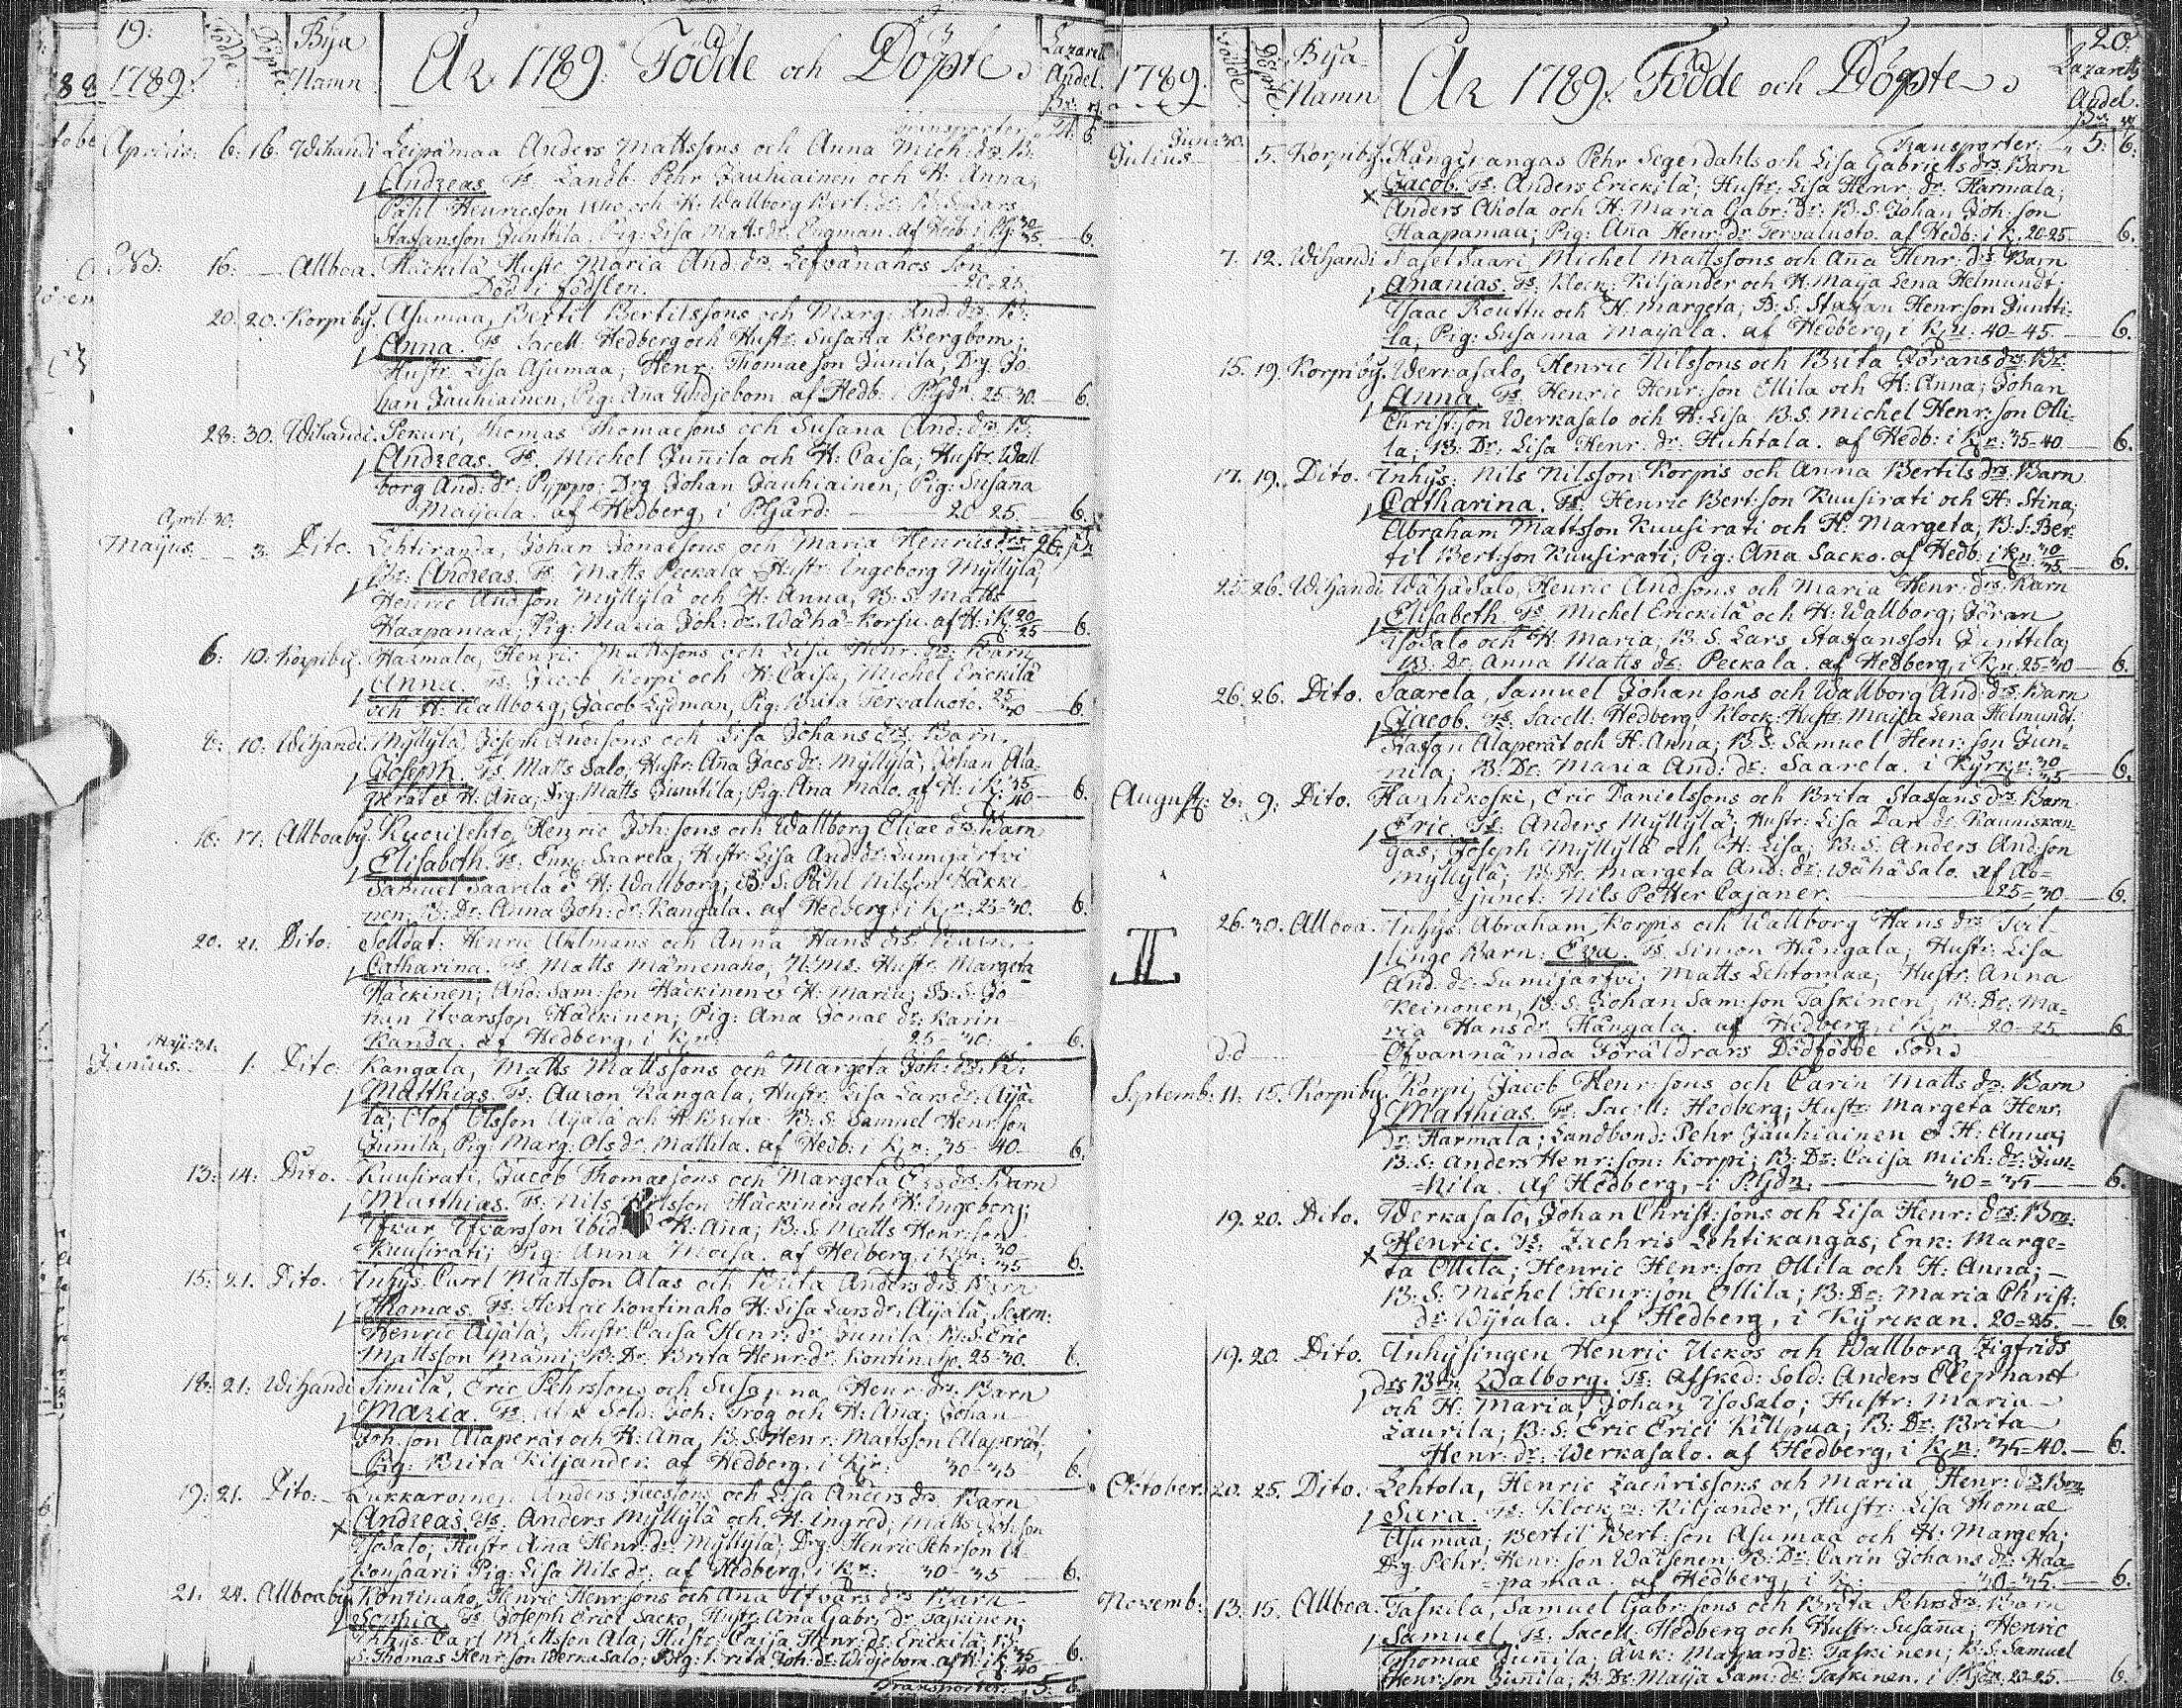 19:
1789.
Födde
Döpte
Bya Namn
År 1789: Födde och Döpte
Lazaretts Andel.
Transporter 24. 6
Aprilis. 6. 16. Wihandi Leipämaa Anders Mattssons och Anna Mich: drs B:
Andreas. Ts: Landb. Pehr Jauhiainen och H: Anna;
Påhl Henricsson och H: Wallborg Bert: dr; B: S: Lars
Stafansson Junttila, Pig: Lisa Matts dr Engman. af Hedb: i Pg: 30/35 6.
16. Allboa. Häckilä Hustr Maria And: drs Lefvänanos Son
Död i födslen. 20-25.
20. 20. Korpiby. Asumaa, Bertil Bertilssons och Marg: And: drs B:
Anna. Ts Sacell Hedberg och Hustr: Susana Bergbom;
Hustr: Lisa Asumaa; Henr: Thomaeson Junila, Drg: Jo-
han Jauhiainen, Pig: Ana Widjebom af Hedb: i Pgdn 25-30. 6.
28. 30. Wihandi. Pekuri, Thomas Thomaesons och Susana And: drs B:
Andreas. Ts. Michel Junila och H: Caisa; Hustr: Wall-
borg And: dr; Pyppo; Drg Johan Jauhiainen; Pig: Susana
Maijala. af Hedberg, i Pgård: 20 25. 6.
April 30.
Majus. 3. Dito. Lehtiranta, Johan Jonaesons och Maria Henrics drs
Br: Andreas. Ts: Matts Peckala, Hustr: Engeborg Myllylä;
Henric Andson Myllylä och H: Anna; B: S: Matts
Haapamaa; Pig: Maria Joh: dr: Wähä-Korju. af H: i K: 20/25 6.
6. 10. Korpiby. Harmala, Henric Mattssons och Lisa Henr: drs Barn
Anna. Ts: Jacob Korpi och H: Caisa; Michel Erickilä
och H: Wallborg; Jacob Lydman, Pig: Brita Tervaluoto. 25/30 6
8. 10. Wihandi. Myllylä Joseph Andersons och Lisa Johans drs Barn.
Joseph. Ts. Matts Salo, Hustr: Ana Jacs dr: Myllylä, Johan Ala-
perät & H: Ana; Drg: Matts Junttila; Pig: Ana Malo. af H: i K: 35/40 6.
16. 17. Allboaby. Kuorilehto, Henric Joh:sons och Wallborg Eliae drs Barn
Elisabeth. Ts. Enk: Saarela; Hustr: Lisa And: dr: Lumijärfvi
Samuel Saarela & H: Wallborg; B: S: Påhl Nilsson Häkki-
nen; B: Dr: Anna Joh: dr: Kangala. af Hedberg, i Kn: 25-30. 6.
20. 21. Dito. Soldat: Henric Ahlmans och Anna Hans drs Barn.
Catharina. Ts. Matts Mämenaho, Hustr: Margeta
Häckinen; And: Sam: son Häckinen & H: Maria; B: S: Jo-
han Ifvarsson Häckinen; Pig: Ana Jonae dr: Karin-
Kanda. af Hedberg, i Kn. 25-30. 6.
Maji 31.
Junius. 1. Dito. Kangala, Matts Mattssons och Margeta Joh: drs B:
Matthias. Ts: Aaron Kangala, Hustr: Lisa Lars dr: Äijä-
lä; Olof Olsson Äijälä och H: Brita. B: S: Samuel Henr: son
Junila, Pig: Marg: Ols dr: Mattila. af Hedb: i Kn: 35-40. 6.
13. 14. Dito. Kuusirati, Jacob Thomaesons och Margeta drs Barn
Matthias. Ts: Nils Nilsson Häckinen och H: Ingeborg;
Ifvar Ifvarsson Ibid: H: Ana; B: S: Matts Henr: son
Kuusirati; Pig: Anna Maisa. af Hedberg, i Kn: 30/35 6.
15. 21. Dito. Inhys: Carl Mattsson Alas och Brita Anders drs Barn
Thomas. Ts. Henric Kontinaho H: Lisa Lars dr: Äijälä;
Henric Äijälä, Hustr: Caisa Henr: dr Junila. B: S: Eric
Mattsson Mämi; B: Dr: Brita Henr: dr: Kontinaho. 25-30. 6.
18. 21. Wihandi Similä, Eric Pehrssons och Susanna Henr: drs Barn
Maria. Ts: Sold: Joh: Trög och H: Ana; Johan
Joh: son Alaperät och H: Ana, B: S: Henr: Mattsson Alaperät;
Pig: Brita Kiljander. af Hedberg, i Kn: 30-35 6.
19. 21. Dito. Lukkaroinen, Anders Jacssons och Lisa Anders drs Barn
Andreas. Ts: Anders Myllylä och H: Ingred; Matts Joh:son
Isosalo; Hustr Ana Henr: dr Myllylä; Drg: Henric Pehrson Ul-
konsaari; Pig: Lisa Nils dr. af Hedberg, i Kn: 30-35 6.
21. 24. Allboaby Kontinaho, Henric Henr:sons och Ana Ifvars drs Barn
Sophia. Ts Joseph Erici Sacko, Hustr: Ana Gabr: dr: Taskinen;
Inhys: Carl Mattsson Ala; Hustr: Caisa Henr: dr: Erickilä; B:
S: Thomas Henr: son Werkasalo; Pig: Brita Joh: dr: Widjebom. af H: i K 35/40 6.
Transporter 5: 6.
1789.
Födde
Döpte
Bya-Namn
År 1789. Födde och Döpte
20.
Lazaretts Andel.
Transporter 5: 6:
Jun: 30.
Julius 5. Korpiby. Kangas Pehr Segerdahls och Lisa Gabriels drs Barn
Jacob. Ts: Anders Erickilä; Hustr: Lisa Henr: dr: Harmala;
Anders Ahola och H: Maria Gabr: dr: B. S. Johan Joh: son
Haapamaa; Pig: Ana Henr: dr Tervaluoto. af Hedb: i K. 20-25 6.
7. 12. Wihandi Saari, Michel Mattssons och Ana Henr: drs Barn
Ananias. Ts. Klock: Kiljander och H: Maija Lena Helmundt;
Isaac Routtu och H: Margeta; B: S: Stafan Henr:son Juntti-
la, Pig: Susanna Maijala. af Hedberg, i Kn: 40-45 6.
15. 19. Korpiby. Werkasalo, Henric Nilssons och Brita Görans drs Br
Anna. Ts. Henric Henr: son Ollila och H: Anna; Johan
Christ: son Werkasalo och H: Lisa. B: S. Michel Henr: son Olli-
la; B: Dr: Lisa Henr: dr: Huhtala. af Hedb: i Kn: 35-40 6.
17. 19. Dito. Inhys: Nils Nilsson Korpis och Anna Bertils drs Barn
Catharina. Ts: Henric Bert: son Kuusirati och H: Stina;
Abraham Mattsson Kuusirati och H: Margeta; B: S: Ber-
til Bert: son Kuusirati; Pig: Ana Sacko. af Hedb: i Kn: 30/35 6.
25. 26. Wihandi Wähäsalo, Henric Andsons och Maria Henr: drs Barn
Elisabeth Ts Michel Erickilä och H: Wallborg; Jöran
Isosalo och H: Maria; B: S: Lars Stafansson Junttila;
B: Dr: Anna Matts dr: Peckala. af Hedberg, i Kn: 25-30 6.
26. 26. Dito. Saarela, Samuel Johansons och Wallborg And: drs Barn
Jacob. Ts. Sacell: Hedberg Klock: Hustr Maija Lena Helmundt;
Stafan Alaperät och H: Anna; B: S: Samuel Henr: son Jun-
nila; B: Dr: Maria And: dr: Saarela. i Kyrk: 30/35 6.
August: 8. 9. Dito. Hanhikoski, Eric Danielssons och Brita Stafans drs Barn
Eric. Ts: Anders Myllylä; Hustr: Lisa Dan: dr: Kauniskan-
gas; Joseph Myllylä och H: Lisa; B: S: Anders And: son
Myllylä; B: Dr. Margeta And: dr: Wähäsalo. af Ad-
junct: Nils Petter Cajaner. 25-30 6.
26. 30. Allboa. Inhys: Abraham Korpis och Wallborg Hans drs Tvil-
linge Barn: Eva. Ts. Simon Hångala; Hustr: Lisa
And: dr: Lumijärfvi; Matts Lehtomaa; Hustr: Anna
Keinonen, B: S: Johan Sam: son Taskinen, B: Dr: Ma-
ria Hans dr: Hångala. af Hedberg, i Kn 20-25 6
II
d:d Ofvannämda Föräldrars Dödfödde Son
Septemb: 11. 15. Korpiby. Korpi, Jacob Henr: sons och Carin Matts drs. Barn
Matthias. Ts. Sacell: Hedberg; Hustr: Margeta Henr:
dr: Harmala; Landbond: Pehr Jauhiainen & H: Anna;
B: S: Anders Henr: son: Korpi; B: Dr: Caisa Mich: dr: Jun-
nila. af Hedberg, i Pgdn: 30-35 6.
19. 20. Dito. Werkasalo, Johan Christ: sons och Lisa Henr: drs: Brn
Henric. Ts. Zachris Lehtikangas; Enk: Marge-
ta Ollila; Henric Henr: son Ollila och H: Anna;
B: S: Michel Henr: son Ollila; B: Dr: Maria Christ:
dr: af Hedberg, i Kyrckan. 20-25. 6.
19. 20. Dito. Inhysingen Henric Uckos och Wallborg Zigfrids
drs Brn Walborg. Ts: Affsked: Sold: Anders Elephant
och H: Maria; Johan Isosalo; Hustr: Maria
Laurila; B: S: Eric Erici Killpua; B: Dr: Brita
Henr: dr: Werkasalo. af Hedberg, i Kn: 35-40. 6.
Oktober. 20. 25. Dito. Lehtola, Henric Zachrissons och Maria Henr: drs Brn
Sara. Ts. Klock: Kiljander, Hustr: Lisa Thomae
Asumaa; Bertil Bert: son Asumaa och H: Margeta;
Drg Pehr Henr: son Waisenen; B: Dr: Carin Johans dr: Haa-
pamaa. af Hedberg, i K: 30-35. 6.
Novemb: 13. 15. Allboa. Taskila, Samuel Gabr: sons och Brita Pehrs drs Barn
Samuel. Ts. Sacell Hedberg och Hustr: Susana; Henric
Thomae Junila; Enk: Marg: Lars dr: Taskinen; B: S: Samuel
Henr: son Junila; B: Dr: Maija Sam: dr: Taskinen. i Pgdn: 20-25. 6.